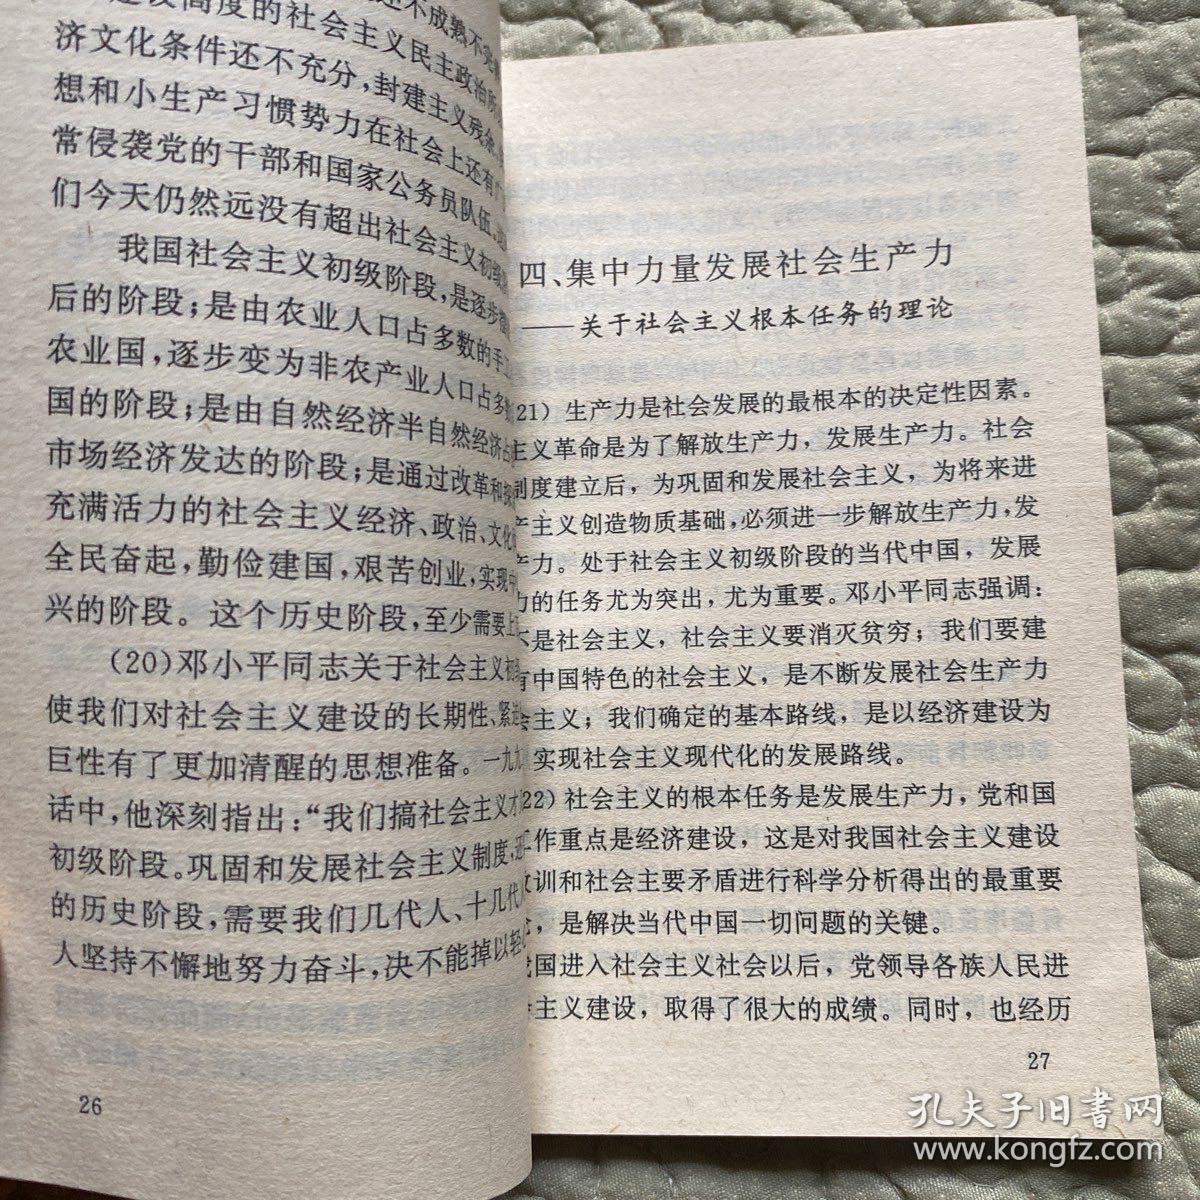 还不成熟不完
建设高度的社会主义民主政治所
济文化条件还不充分，封建主义残余
想和小生产习惯势力在社会上还有
常侵袭党的干部和国家公务员队伍
们今天仍然远没有超出社会主义初级
我国社会主义初级阶段，是逐步
后的阶段；是由农业人口占多数的手工
农业国，逐步变为非农产业人口占多
国的阶段；是由自然经济半自然经济占
市场经济发达的阶段；是通过改革和
充满活力的社会主义经济、政治、文化
全民奋起，勤俭建国，艰苦创业，实现中
兴的阶段。这个历史阶段，至少需要上
(20)邓小平同志关于社会主义初
使我们对社会主义建设的长期性、紧
巨性有了更加清醒的思想准备。一九九
话中，他深刻指出：“我们搞社会主义才
初级阶段。巩固和发展社会主义制度，还
的历史阶段，需要我们几代人、十几代人
人坚持不懈地努力奋斗，决不能掉以轻心
26
四、集中力量发展社会生产力
——关于社会主义根本任务的理论
21) 生产力是社会发展的最根本的决定性因素。
主义革命是为了解放生产力，发展生产力。社会
制度建立后，为巩固和发展社会主义，为将来进
产主义创造物质基础，必须进一步解放生产力，发
产力。处于社会主义初级阶段的当代中国，发展
力的任务尤为突出，尤为重要。邓小平同志强调：
不是社会主义，社会主义要消灭贫穷；我们要建
有中国特色的社会主义，是不断发展社会生产力
会主义；我们确定的基本路线，是以经济建设为
实现社会主义现代化的发展路线。
22) 社会主义的根本任务是发展生产力，党和国
工作重点是经济建设，这是对我国社会主义建设
教训和社会主要矛盾进行科学分析得出的最重要
论，是解决当代中国一切问题的关键。
我国进入社会主义社会以后，党领导各族人民进
会主义建设，取得了很大的成绩。同时，也经历
27
孔夫子旧书网
www.kongfz.com